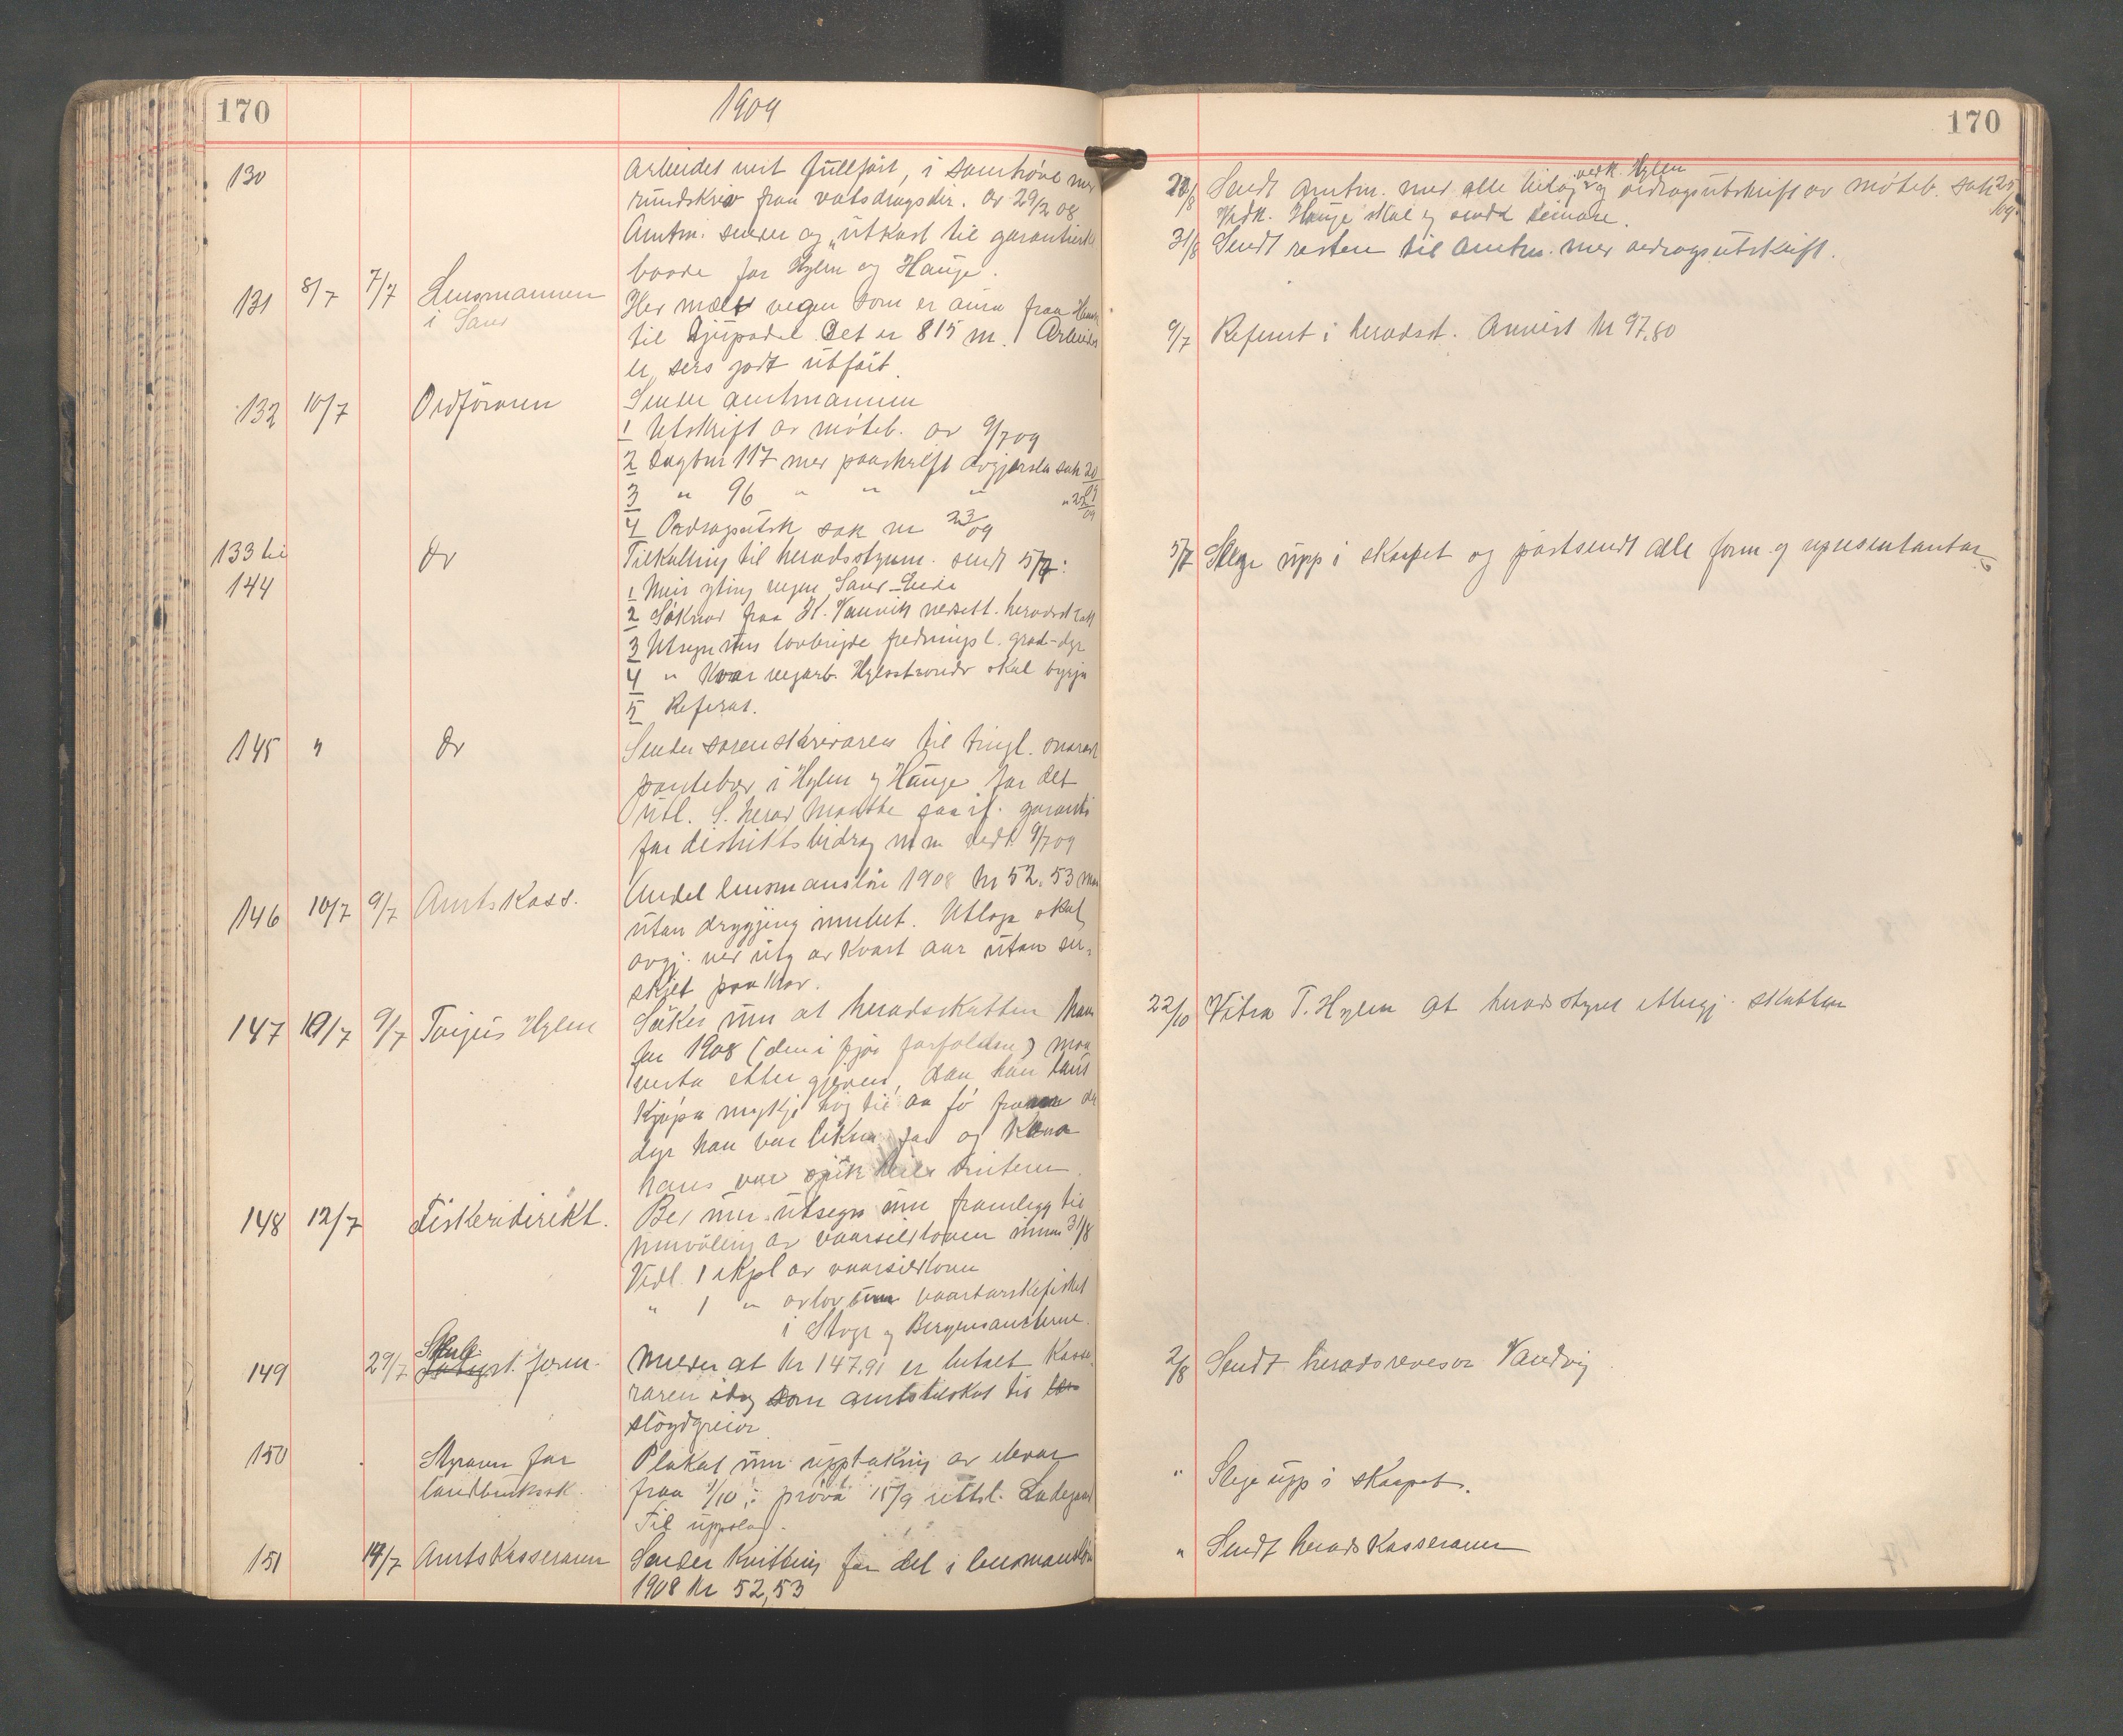 170
1909
130
arbeidet vert fullført, i samhøve med
rundskriv fraa vatsdragsdir. av 29/2 08
Amtm. sender og "utkast til garantierkl
baade for Hylen og Hauge.
131 8/7 7/7 Lensmannen i Saud
Her mælt vegen som er aura fraa
til Djupadal. Det er 815 m. Arbeidet
er sers godt utført.
132 10/7 Ordføraren
Sender amtmannen
1 Utskrift av møteb. av 9/7 09
2 Dagbnr 117 med paaskrift avgjersla sak 20/09
3 " 96 " " " " 22/09
4 Ordragsutsk sak nr 23/09
133 til 144 Do
Tilkalling til heradsstyrem. sendt 5/7:
1 Meir yting vegen Saud-
2 Søknad fraa H. Vanvik nedsett. heradsskatt
3 Utsegn um lovbrigde fredningsl. grad-dyr
4 " kvar vegarb. Hylsstranda skal byrja
5 Referat.
145 " Do
Sender sorenskrivaren til tingl.
pantebrev i Hylen og Hauge for det
utl. S. herad maatte faa if. garanti
for distriktsbidrag m m vedk 9/7 09
146 10/7 9/7 Amtskass.
Andel lensmansløn 1908 kr 52,53 maa
utan drygjing innbet. Utloga skal
avgj. ved utg av kvart aar utan ser-
skilt paakrav.
147 10/7 9/7 Torjus Hylen
Søker um at heradsskatten hans
for 1908 (den i fjor forfaldne) maa
verta ettergjeven, daa han laut
kjøpa mykje høy til aa fø fram dei
dyr han var likna for og kona
hans var sjuk heile vinteren.
148 12/7 Fiskeridirekt.
Bed um utsegn um framlegg til
umvøling av vaarsildloven innan 31/8
Vedl. 1 ekspl av vaarsildloven
" 1 " av lov um vaartorskefisket
i Stvgr og Bergensamterne.
149 29/7 Skulest. form.
Melder at kr 147,91 er betalt kasse-
raren idag som amtstilskot til
sløydgreior
150 Styraren for landbruksk.
Plakat um upptaking av elevar
fraa 1/10; prøva 15/9
Til uppslag.
151 14/7 Amtskasseraren
Sender kvittering for del i lensmansløn
1908 kr 52,53
170
23/8 Sendt Amtm. med alle bilag vedk. Hylen og ordragsutskrift av møteb. sak 25/09
Vedk. Hauge skal eg senda seinare.
31/8 Sendt resten til amtm. med ordragsutskrift.
9/7 Referert i heradsst. Anvist kr 97,80
5/7 Slege upp i skapet og postsendt alle form. og representantar
22/10 Vitra T. Hylen at heradsstyret ettergj. skatten
2/8 Sendt heradsrevisor Vandvig
" Slege upp i skapet.
" Sendt heradskasseraren